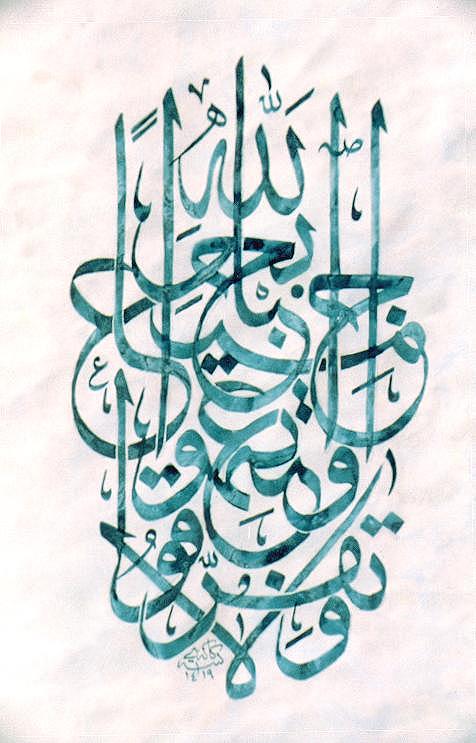 واعتصموا بحبل الله جميعا ولا تفرقوا
كتبه
١٤١٩